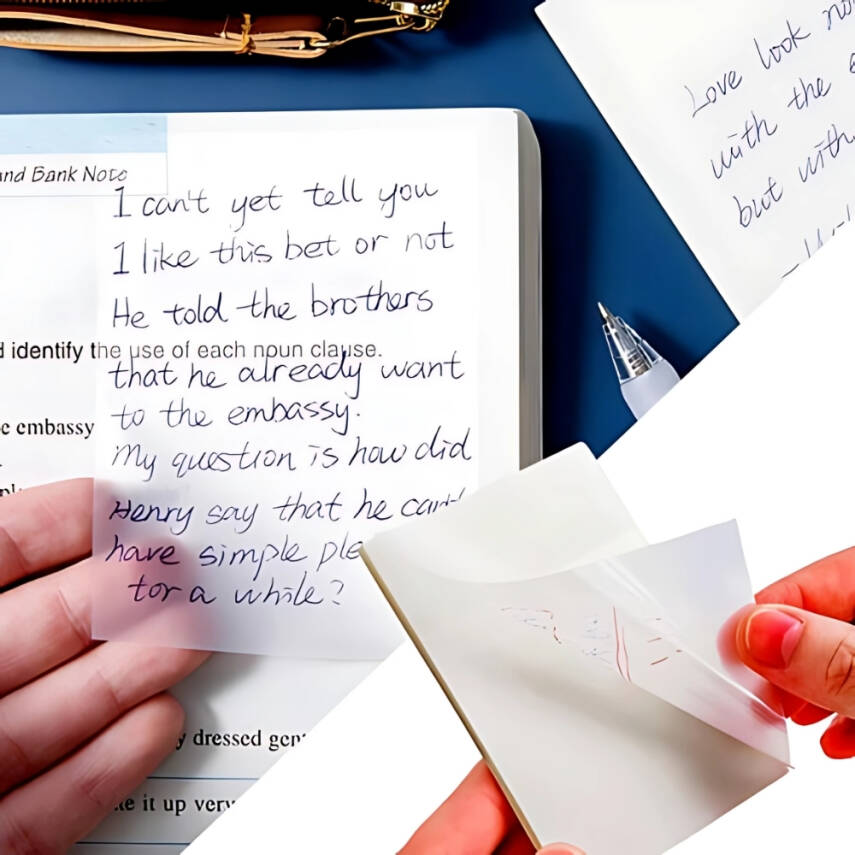 and Bank Note
I can't yet tell you
I like this bet or not
He told the brothers
identify the use of each noun clause.
that he already want
to the embassy.
e embassy
My question is how did
Henry say that he can't
have simple
for a while?
dressed
it up very
Love look
with the
but with